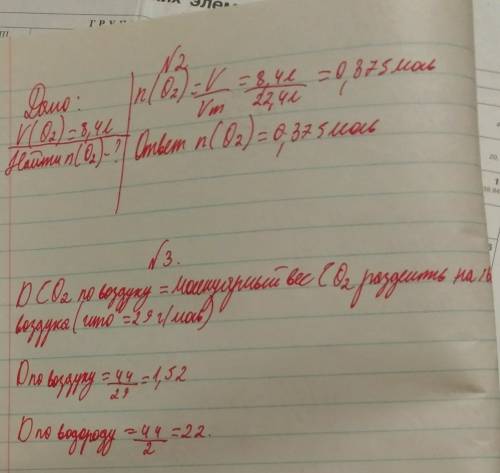 ГРУП
№2
Дано:
V(O₂)=8,4л
Найти n(O₂)-?
n(O₂)=V/Vm=8,4л/22,4л=0,375моль
Ответ n(O₂)=0,375моль
№3.
D CO₂ по воздуху = молекулярный вес CO₂ разделить на
воздуха (что =29 г/моль)
D по воздуху=44/29=1,52
D по водороду=44/2=22.